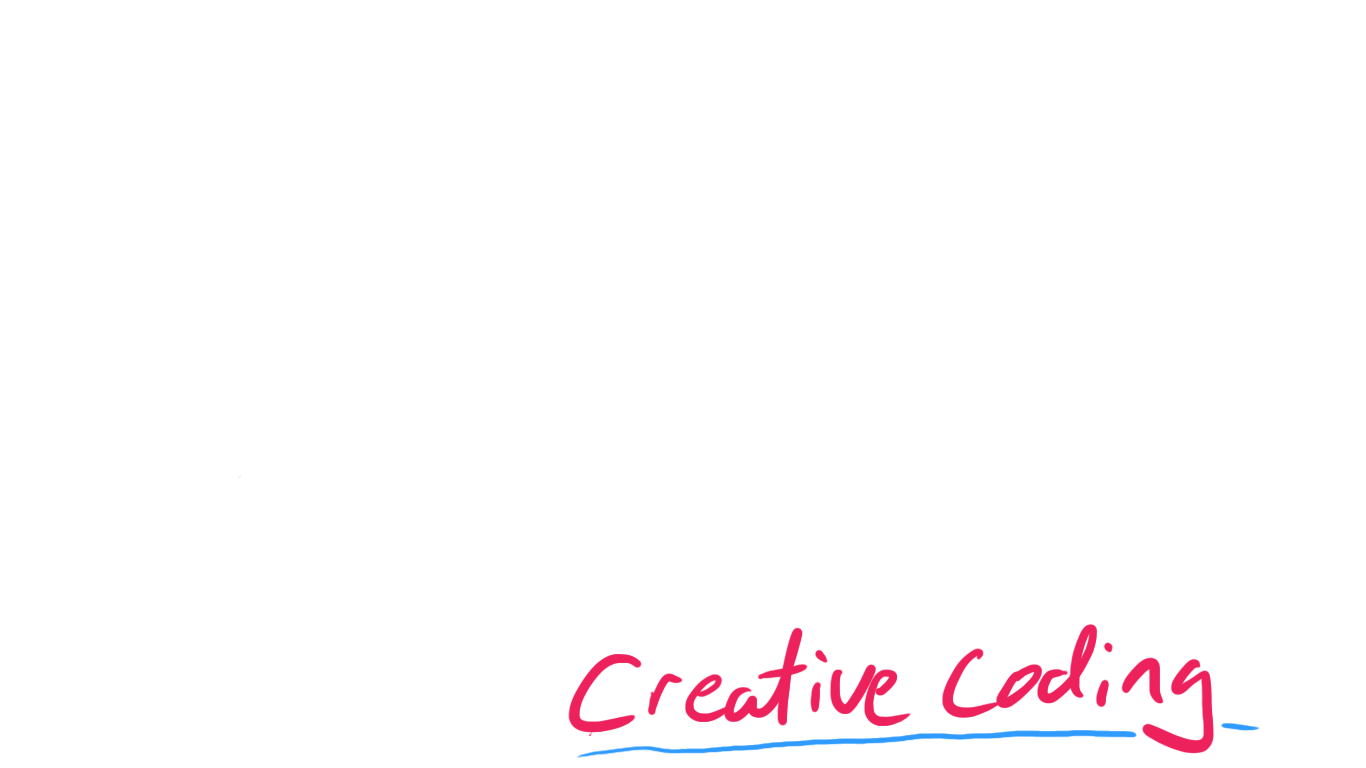 Creative Coding